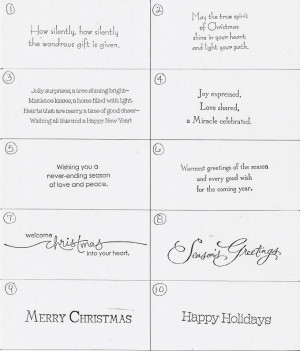 1
How silently, how silently
the wondrous gift is given.
2
May the true spirit
of Christmas
shine in your heart
and light your path.
3
Jolly surprises, a tree shining bright~
Mistletoe kisses, a home filled with light.
Hearts that are merry, a time of good cheer~
Wishing all this and a Happy New Year!
4
Joy expressed,
Love shared,
a Miracle celebrated.
5
Wishing you a
never-ending season
of love and peace.
6
Warmest greetings of the season
and every good wish
for the coming year.
7
welcome
Christmas
into your heart.
8
Season's Greetings
9
MERRY CHRISTMAS
10
Happy Holidays